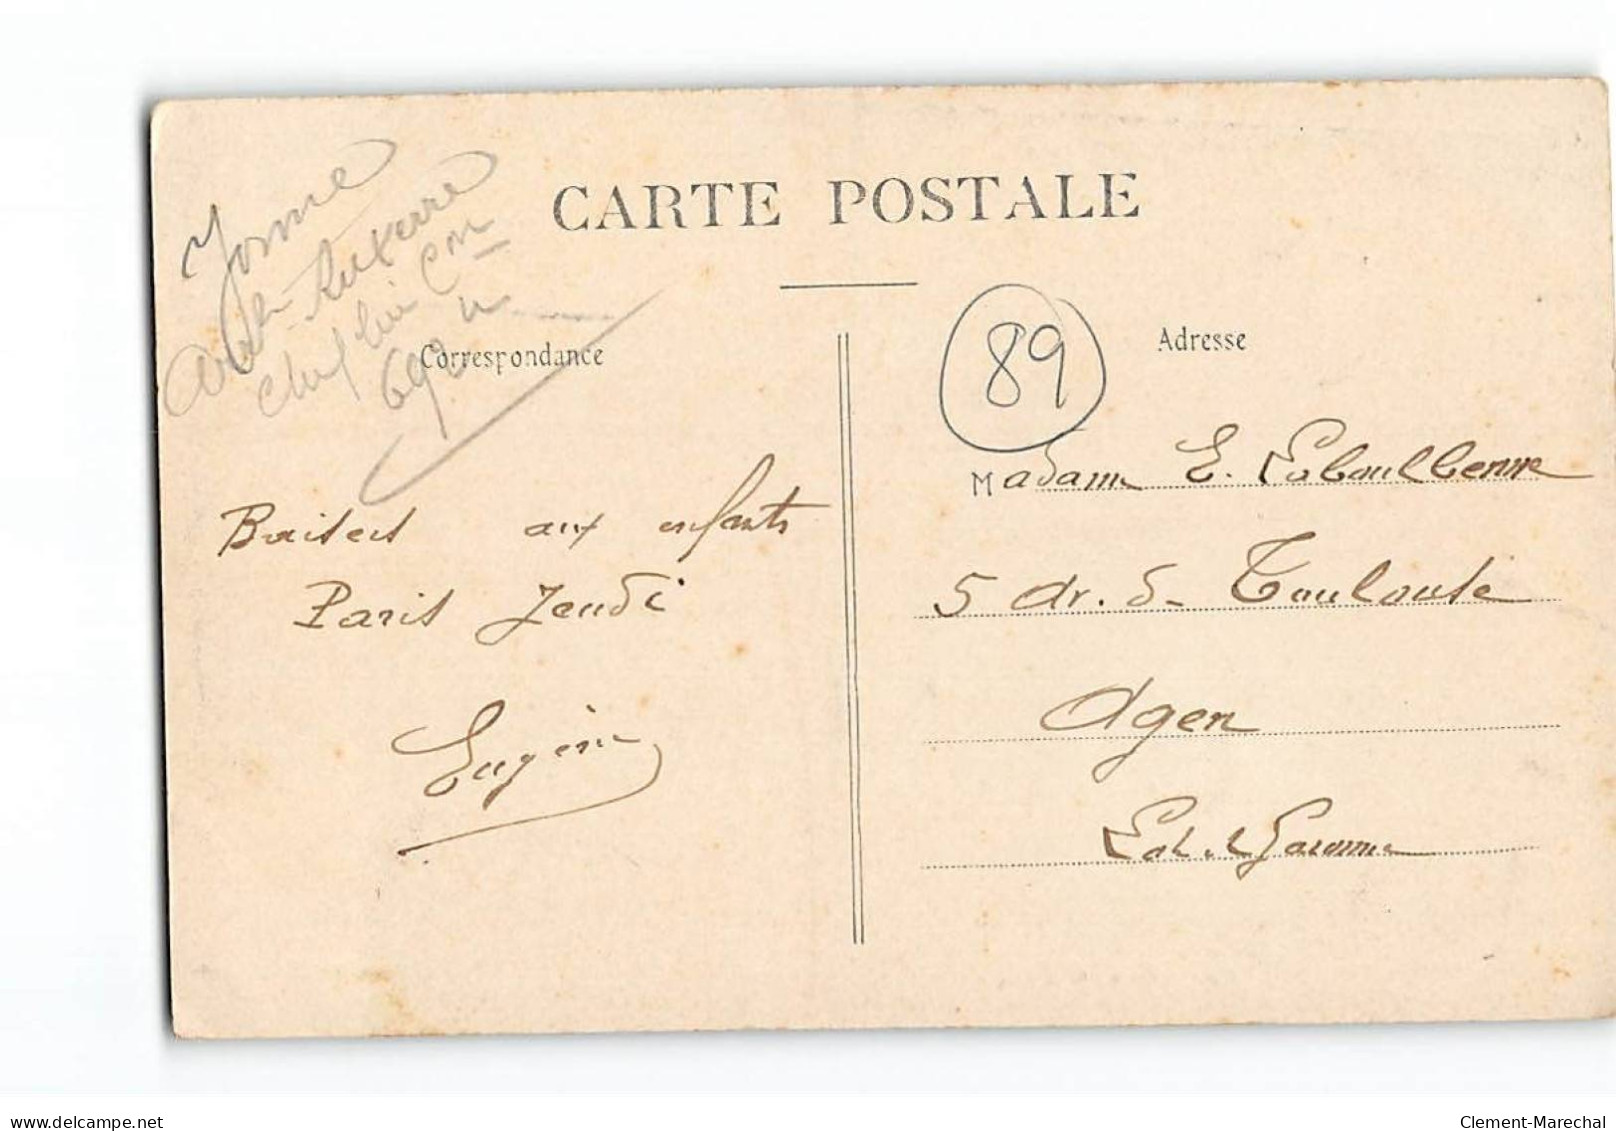 CARTE POSTALE
Yonne
Arr Auxerre
Chef lieu Con
690 h
Correspondance
89
Adresse
Baisers aux enfants
Paris Jeudi
Eugène
Madame E. Laboulbenne
5 dr. de Toulouse
Agen
Lot et Garonne
delcampe.net
Clement-Marechal